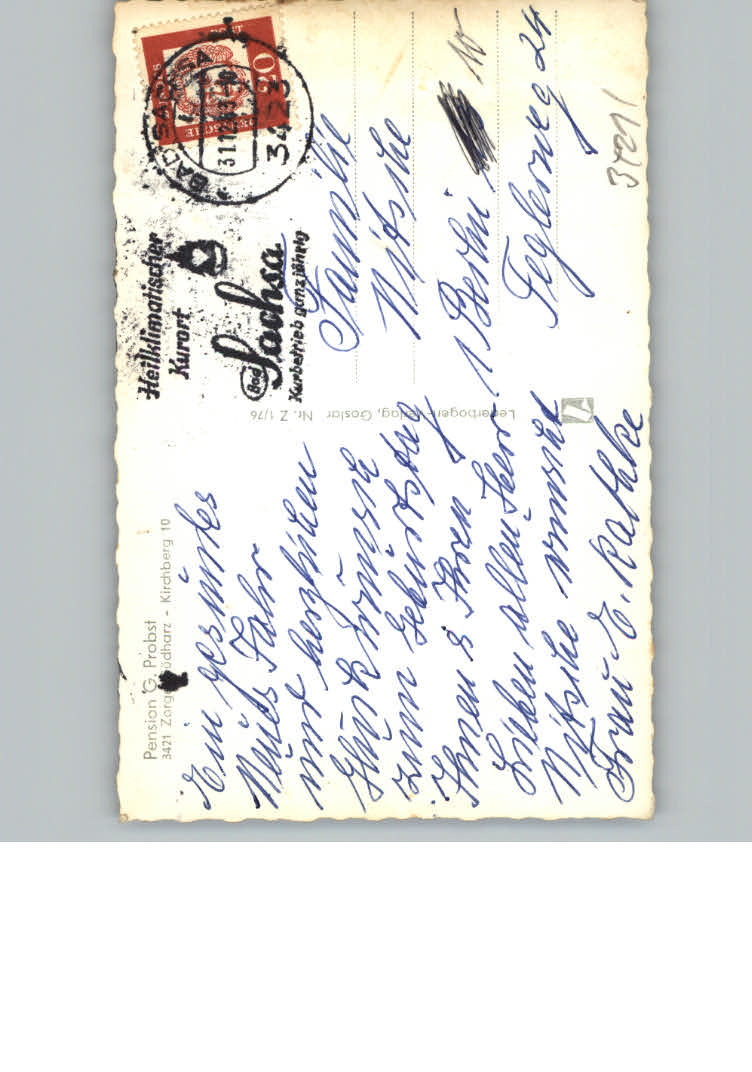 Pension G. Probst
3421 Zorge Südharz - Kirchberg 10
Ein gesundes
Neues Jahr
und herzlichen
Glückwunsch
zum Geburtstag
Ihnen & Ihren
Lieben allen Herr
Nitsche wünscht
Frau E. Rathke
Lederbogen-Verlag, Goslar Nr. Z 1/76
Heilklimatischer
Kurort
Bad Sachsa
Kurbetrieb ganzjährig
BAD SACHSA
31.12.63
3423
DEUTSCHE
POST
20
Familie
Nitsche
1 Berlin 10
Teglerweg 24